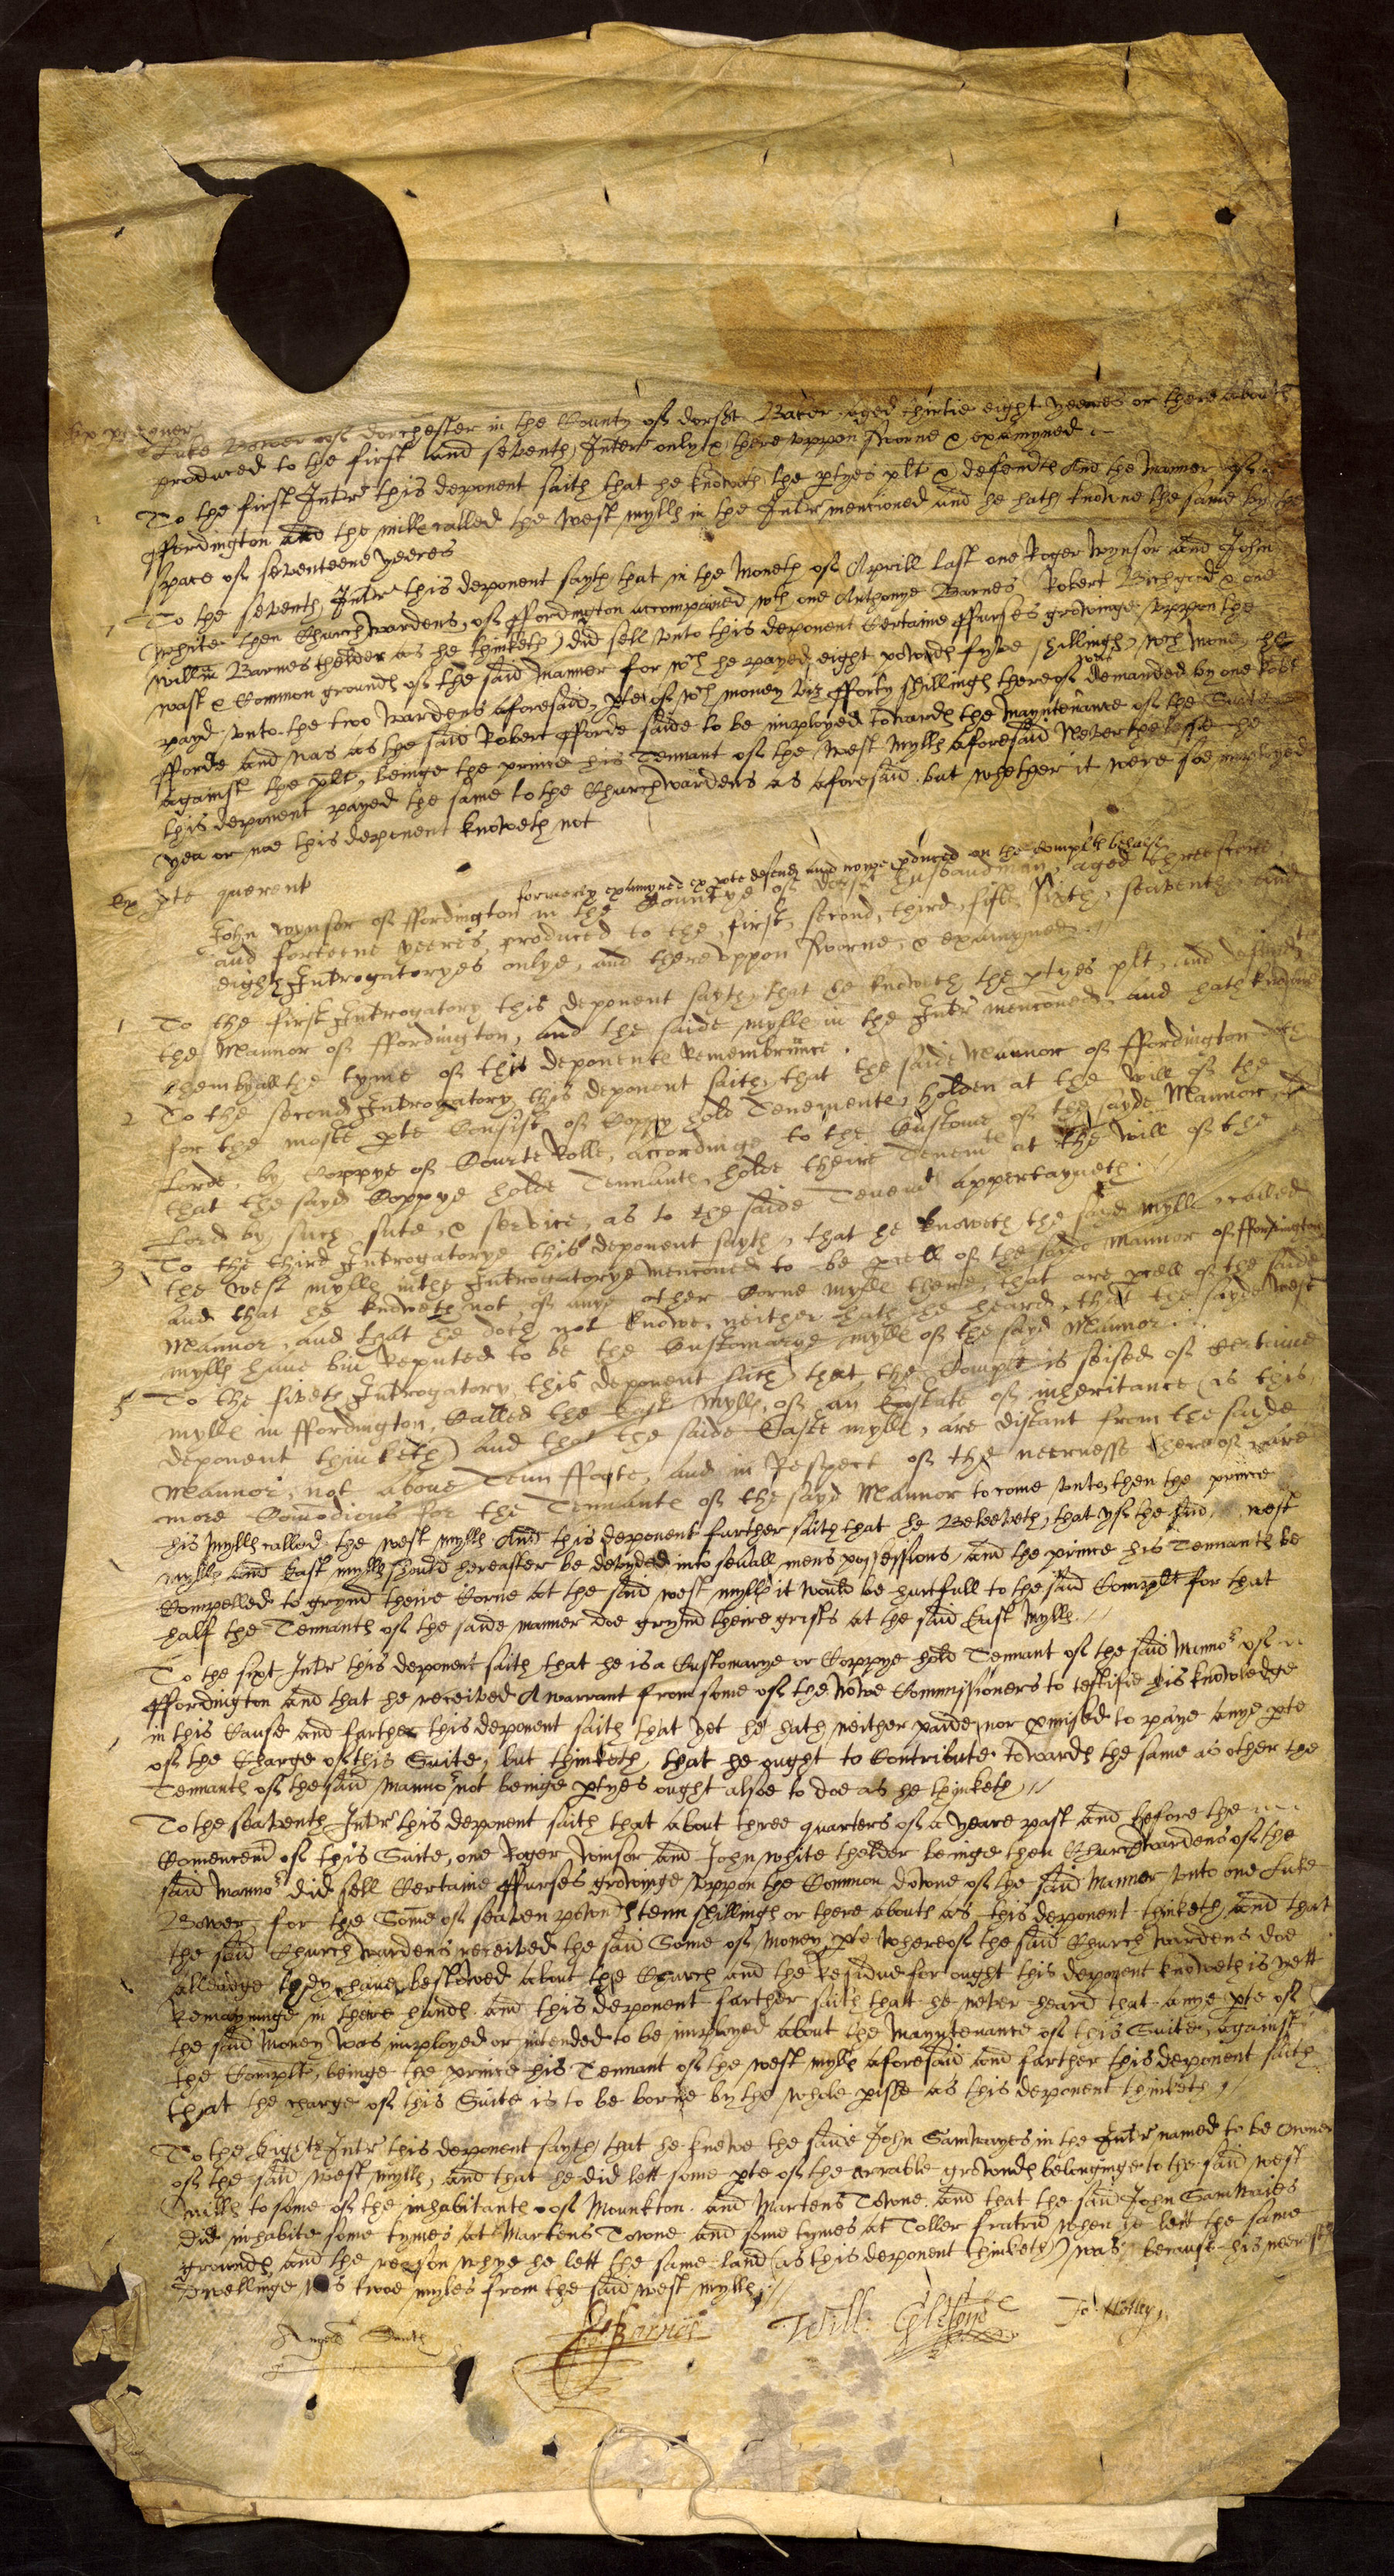 Luke Bower of dorchester in the County of dorset Baker aged thirtie eight yeeres or there abouts
produced to the first and seventh Intrr only & there uppon sworne & examyned
1 To the first Intrr this deponent saith that he knoweth the ptyes plt & defendts And the Manner of
ffordington and the mille called the west mylls in the Intrr mentioned and he hath knowne the same by the
space of seventeene yeeres
7 To the seventh Intrr this deponent sayth that in the Moneth of Aprill last one Roger wynsor and John
white then Churchwardens of ffordington accompanied wth one Anthonye Barnes Robert Bichgood & one
willm Barnes thelder as he thinketh did sell unto this deponent Certaine ffurses growinge uppon the
wast & Common grounds of the said Manner for wch he payed eight pownds fyve shillings wch money he
payd unto the two wardens aforesaid, pte of wch money viz fforty shillings thereof was demanded by one Robt
fforde and was as the said Robert fforde saide to be imployed towards the Mayntenance of the Suite
against the plt, beinge the prince his Tennant of the west mylls aforesaid Neverthelesse he
this deponent payed the same to the Churchwardens as aforesaid but whether it were soe imployed
yea or noe this deponent knoweth not
Ex pte querent
formerly examyned ex pte defend and nowe pduced on the complts behalf
John wynsor of ffordington in the Countye of dorset husbandman, aged threescore
and forteene yeeres, produced to the first, second, third, fift, sixth, seaventh and
eight Introgatoryes onlye, and thereuppon sworne & examyned
1 To the first Introgatory this deponent sayth that he knoweth the ptyes plt, and defendts
the Mannor of ffordington, and the saide mylls in the Intrr menconed, and hath knowne
them by all the tyme of this deponents Remembrance.
2 To the second Introgatory this deponent saith that the saide Mannor of ffordington doth
for the moste pte Consist of Coppy hold Tenements, holden at the will of the
Lorde, by Coppye of Courte Rolle, accordinge to the Custome of the sayde Mannor
that the sayd Coppye holde Tennants holde theire Tenemts at the will of the
Lord by such sute, & service, as to the saide Tenemts appertayneth.
3 To the third Introgatorye this deponent sayth, that he knoweth the sayd mylls called
the west mylls in the Introgatorye menconed to be pcell of the saide Mannor of ffordington
and that he knoweth not of anye other Corne mylls there, that are pcell of the saide
Mannor, and that he doth not knowe, neither hath he heard, that the sayde west
mylls have bin Reputed to be the Customarye mylls of the sayd Mannor.
5 To the fiveth Introgatory this deponent saith that the Complt is seised of Certaine
mylls in ffordington, Called the East mylls, of an Eastate of inheritance (as this
deponent thinketh) and that the saide Easte mylls, are distant from the sayde
Mannor, not above Tenn ffoote, and in Respect of the neernesse thereof, are
more Comodious for the Tennants of the sayd Mannor to come unto, then the prince
his mylls called the west mylls And this deponent further saith that he Beleeveth, that yf the said west
mylls and East mylls should hereafter be devyded into seuall mens possessions, and the prince his Tennants be
Compelled to grynd theire Corne at the said west mylls it would be hurtfull to the said Complt for that
half the Tennants of the saide manner doe grynd theire grists at the said East mylls.
To the sixt Intrr this deponent saith that he is a Customarye or Coppye hold Tennant of the said Mannor of
ffordington and that he received A warrant from some of the Nowe Commissioners to testifie his knowledge
in this Cause and farther this deponent saith that yet he hath neither paide, nor pmised to paye anye pte
of the Charge of this Suite, but thinketh, that he ought to Contribute towards the same as other the
Tennants of the said Mannor not beinge ptyes ought alsoe to doe as he thinketh
To the seaventh Intrr this deponent saith that about three quarters of a yeare past and before the
Comencemt of this Suite, one Roger winsor and John white thelder beinge then Churchwardens of the
said Mannor did sell Certaine ffurses growinge uppon the Common downe of the said Manner unto one Luke
Bower, for the Some of seaven pownds tenn shillings or there abouts as this deponent thinketh, and that
the said Churchwardens received the said Some of Money, pte whereof the said Churchwardens doe
alleadge they have bestowed about the Church and the Residue for ought this deponent knoweth is yett
Remayninge in there hands And this deponent farther saith that he never heard that anye pte of
the said money was imployed or intended to be imployed about the Mayntenance of this Suite, against
the Complt, beinge the prince his Tennant of the west mylls aforesaid and farther this deponent saith
that the charge of this Suite is to be borne by the whole pishe as this deponent thinketh
To the Eigth Intrr this deponent sayth that he knewe the saide John Samwayes in the Intrr named to be owner
of the said west mylls, and that he did lett some pte of the arrable grownds belonginge to the said west
mills to some of the inhabitants of Mounkton and Martens Towne and that the said John Samwaies
did inhabite some tymes at Martens Towne and some tymes at Toller fratrū when he lett the same
grounds, and the reason whye he lett the same land (as this deponent thinketh) was, because his neerest
Dwellinge was twoe myles from the said west mylls
Barnes
Will: